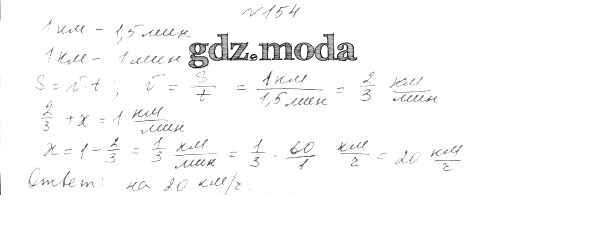 №154
1 км – 1,5 мин
1 км – 1 мин
gdz.moda
S = v·t; v = S/t = 1 км/1,5 мин = 2/3 км/мин
2/3 + x = 1 км/мин
x = 1 - 2/3 = 1/3 км/мин = 1/3 · 60/1 км/г = 20 км/г
Ответ: на 20 км/г.